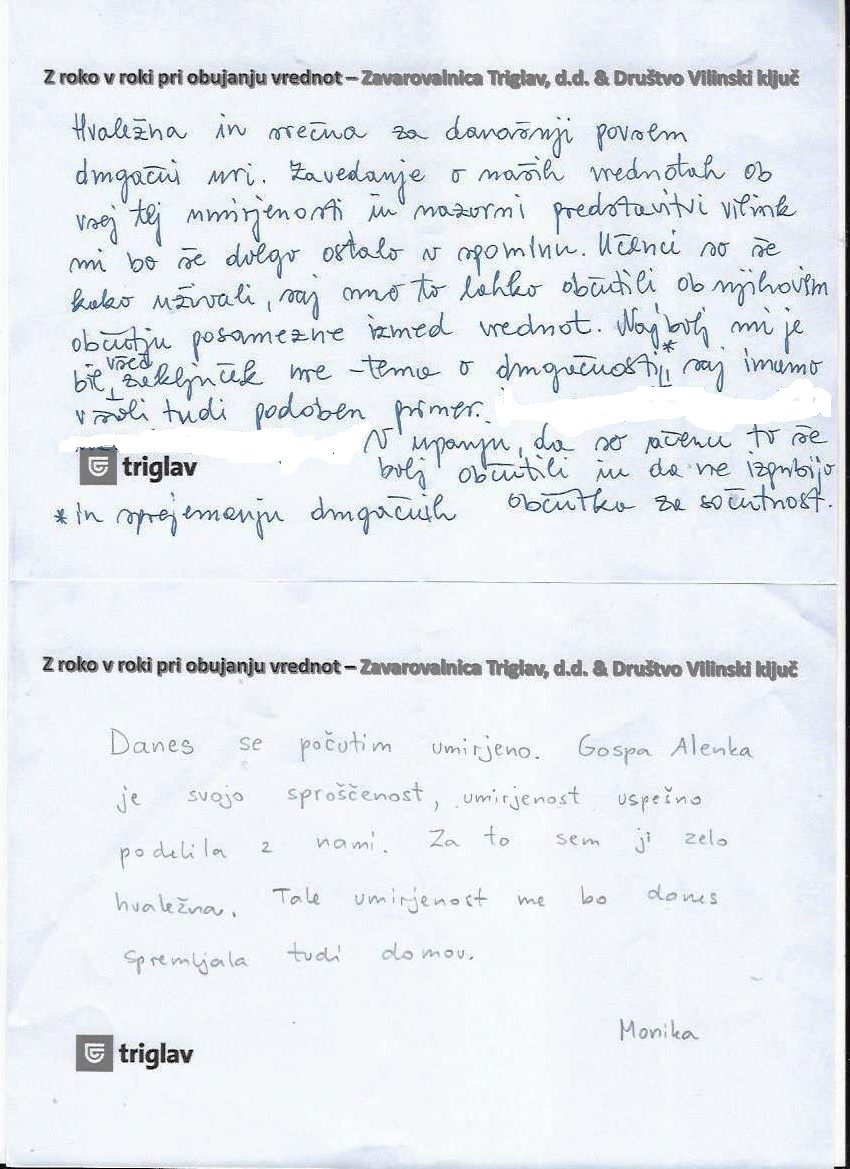 Z roko v roki pri obujanju vrednot – Zavarovalnica Triglav, d.d. & Društvo Vilinski ključ
Hvaležna in srečna za današnji povsem
drugačni uri. Zavedanje o naših vrednotah ob
vsej tej umirjenosti in nazorni predstavitvi vilink
mi bo še dolgo ostalo v spominu. Učenci so še
kako uživali, saj smo to lahko občutili ob njihovem
občutju posamezne izmed vrednot. Najbolj mi je
bil všeč zaključek ure - tema o drugačnosti*, saj imamo
v šoli tudi podoben primer.
V upanju, da so učenci to še
bolj občutili in da ne izgubijo
triglav
občutka za sočutnost.
* in sprejemanju drugačnih
Z roko v roki pri obujanju vrednot – Zavarovalnica Triglav, d.d. & Društvo Vilinski ključ
Danes se počutim umirjeno. Gospa Alenka
je svojo sproščenost, umirjenost uspešno
podelila z nami. Za to sem ji zelo
hvaležna. Tale umirjenost me bo danes
spremljala tudi domov.
Monika
triglav